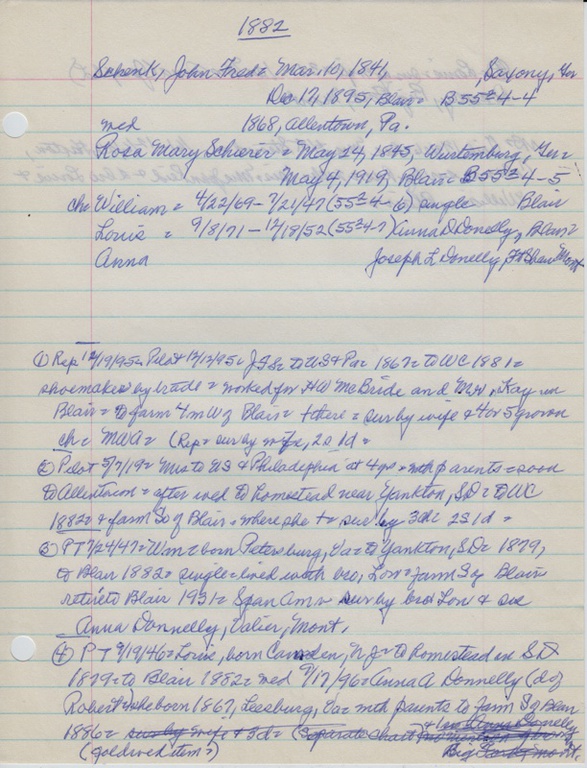 1882
Schenk, John Fred = Mar. 10, 1841, Saxony, Ger
Dec 17, 1895, Blair = B 55 4-4
med 1868, Allentown, Pa.
Rosa Mary Schierer = May 24, 1845, Wurtemburg, Ger
May 4, 1919, Blair = B 55 4-5
ch = William = 4/22/69 - 7/21/47 (55 4-6) single Blair
Louis = 9/8/71 - 12/18/52 (55 4-7) Anna D Donnelly, Blair
Anna Joseph L Donelly, Ft Shaw Mont
① Rep 12/19/95 = Pilot 12/12/95 = J F S = to US & Pa = 1867 = to WC 1881 =
shoemaker by trade = worked for HW McBride and M.H. Kay in
Blair = to farm 4 m W of Blair = + there = sur by wife & 4 or 5 grown
ch = MWA = (Rep = sur by wife, 2s 1d =
② Pilot 5/7/19 = Mrs to US & Philadelphia at 4 yrs = with parents = soon
to Allentown = after wed to homestead near Yankton, SD = to WC
1882 = & farm So of Blair = where she + = sur by 3 ch 2S 1d =
③ PT 7/24/47 = Wm = born Petersburg, Va = to Yankton, SD = 1879,
to Blair 1882 = single = lived with bro, Lou = farm S of Blair =
retire to Blair 1931 = Span Am = sur by bro Lou & sis
Anna Donnelly, Valier, Mont.
④ PT 9/19/46 = Louis, born Camden, NJ = to homestead in SD
1879 = to Blair 1882 = med 9/17/96 = Anna A Donnelly (d of
Robert) she born 1867, Leesburg, Va = with parents to farm S of Blair
1886 = sur by wife & 3d = (Separate chart) & Anna Donnelly
(gold wed item)